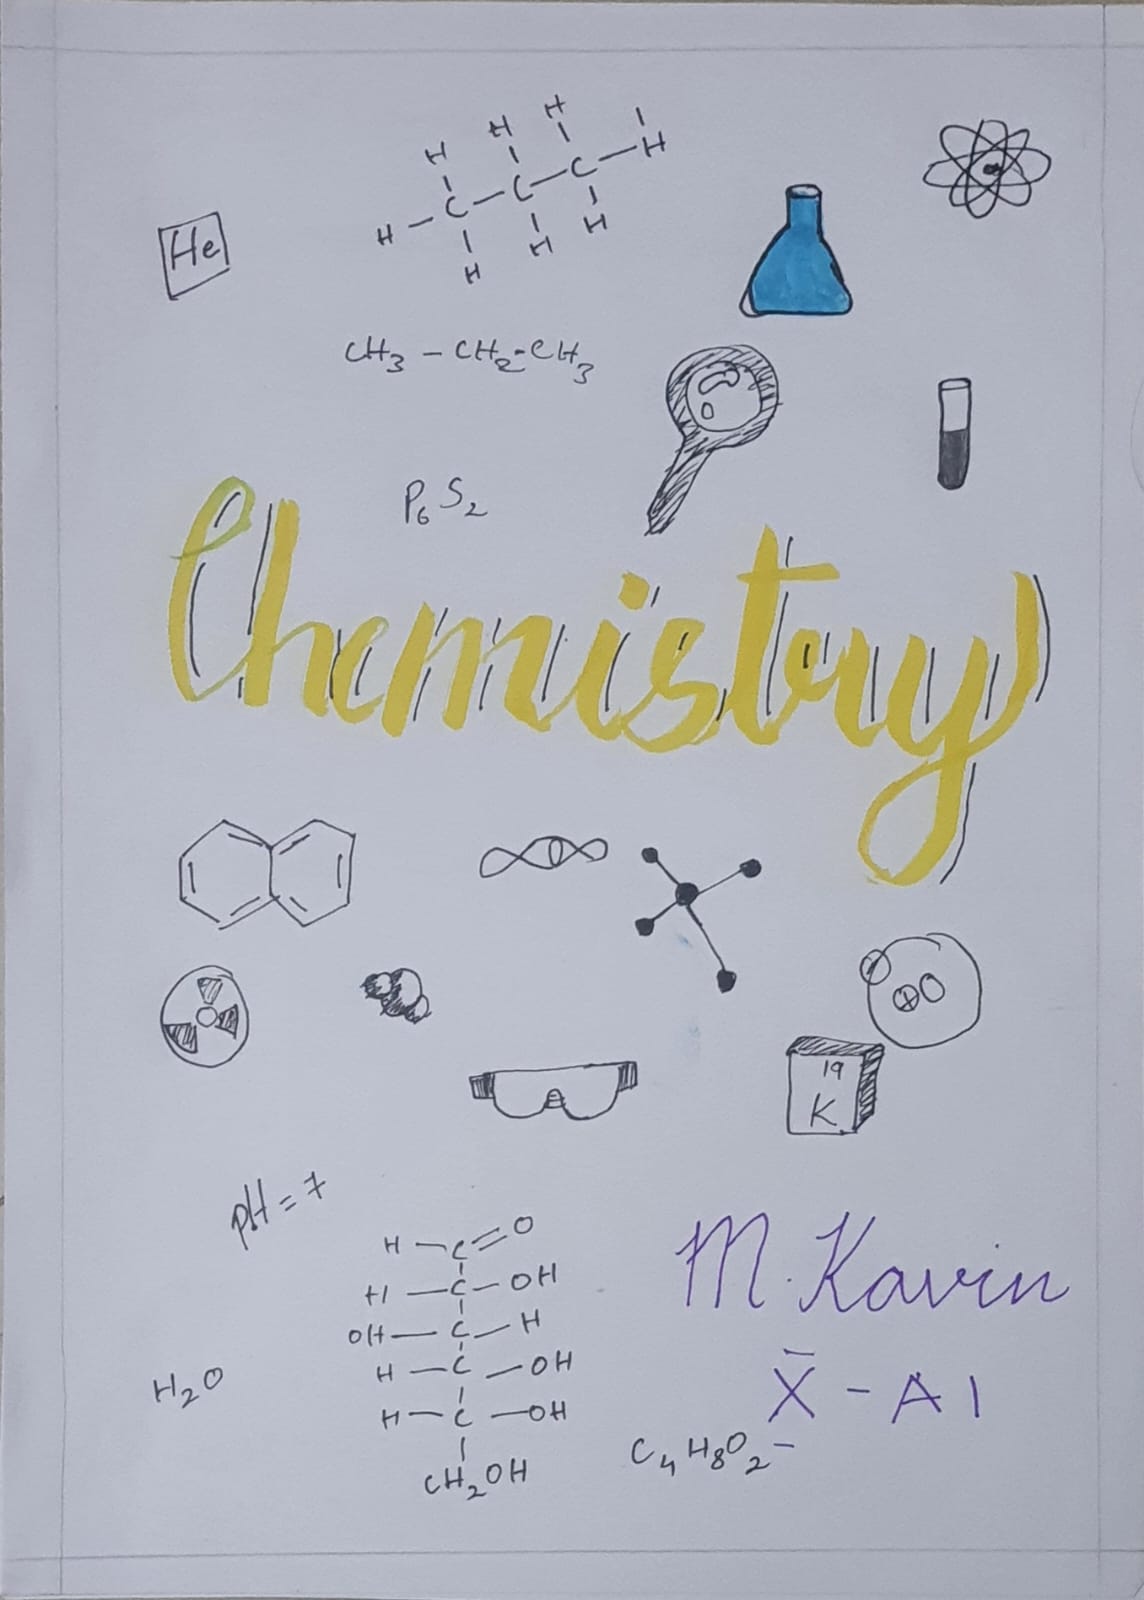 H H H
H – C – C – C – H
H H H
He
CH₃ – CH₂ – CH₃
P₆S₂
Chemistry
19
K
pH = 7
H – C = O
H – C – OH
OH – C – H
H – C – OH
H – C – OH
CH₂OH
H₂O
M. Kavin
X – A1
C₄H₈O₂